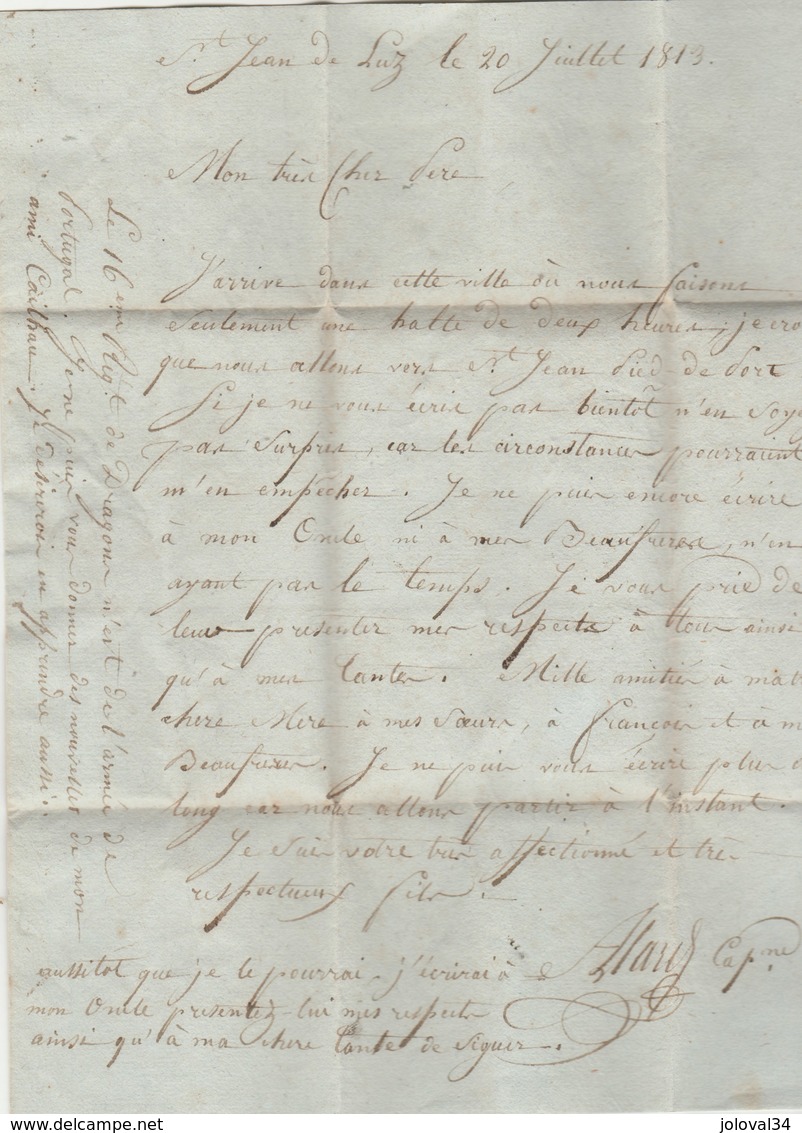 St Jean de Luz le 20 Juillet 1813.
Mon très Cher Pere
J'arrive dans cette ville où nous faisons
seulement une halte de deux heures, je cro
que nous allons vers St Jean Pied de Port
Si je ne vous écris pas bientôt n'en soye
pas surpris, car les circonstances pourraient
m'en empecher. Je ne puis encore écrire
à mon Oncle ni à mes Beaufreres, n'en
ayant pas le temps. Je vous prie de
leur presenter mes respects à tous ainsi
qu'à mes tantes. Mille amitiés à ma t
chere Mere à mes Sœurs, à françois et à m
Beaufreres. Je ne puis vous écrire plus
long car nous allons partir à l'instant.
Je suis votre très affectionné et trè-
respectueux fils.
Capne
aussitot que je le pourrai j'écrirai à
mon Oncle presentez-lui mes respects
ainsi qu'à ma chere tante de Siguer.
Le 16em Regt de Dragons n'est de l'armée de
Portugal. Je ne puis vous donner des nouvelles de mon
ami Cailhau. Je désirerois en apprendre aussi.
joloval34